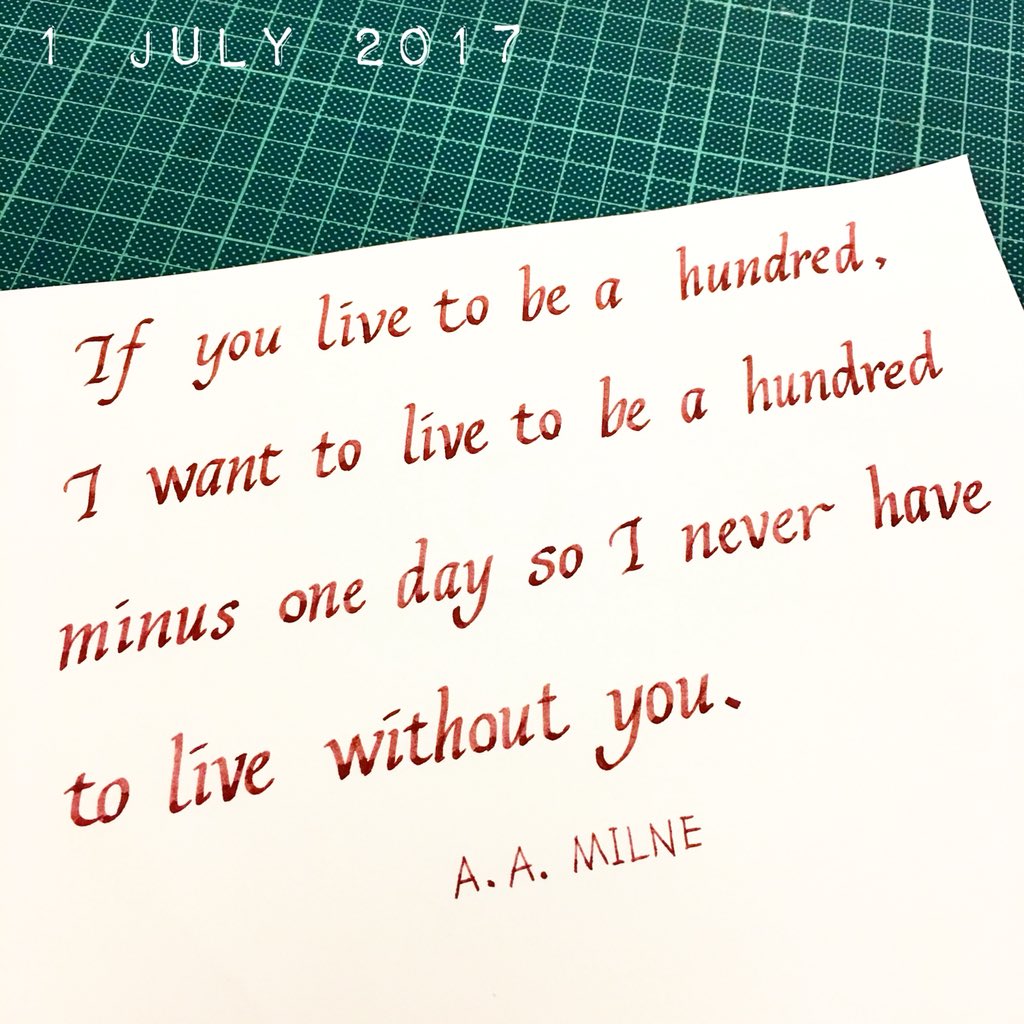 1 JULY 2017
If you live to be a hundred,
I want to live to be a hundred
minus one day so I never have
to live without you.
A. A. MILNE